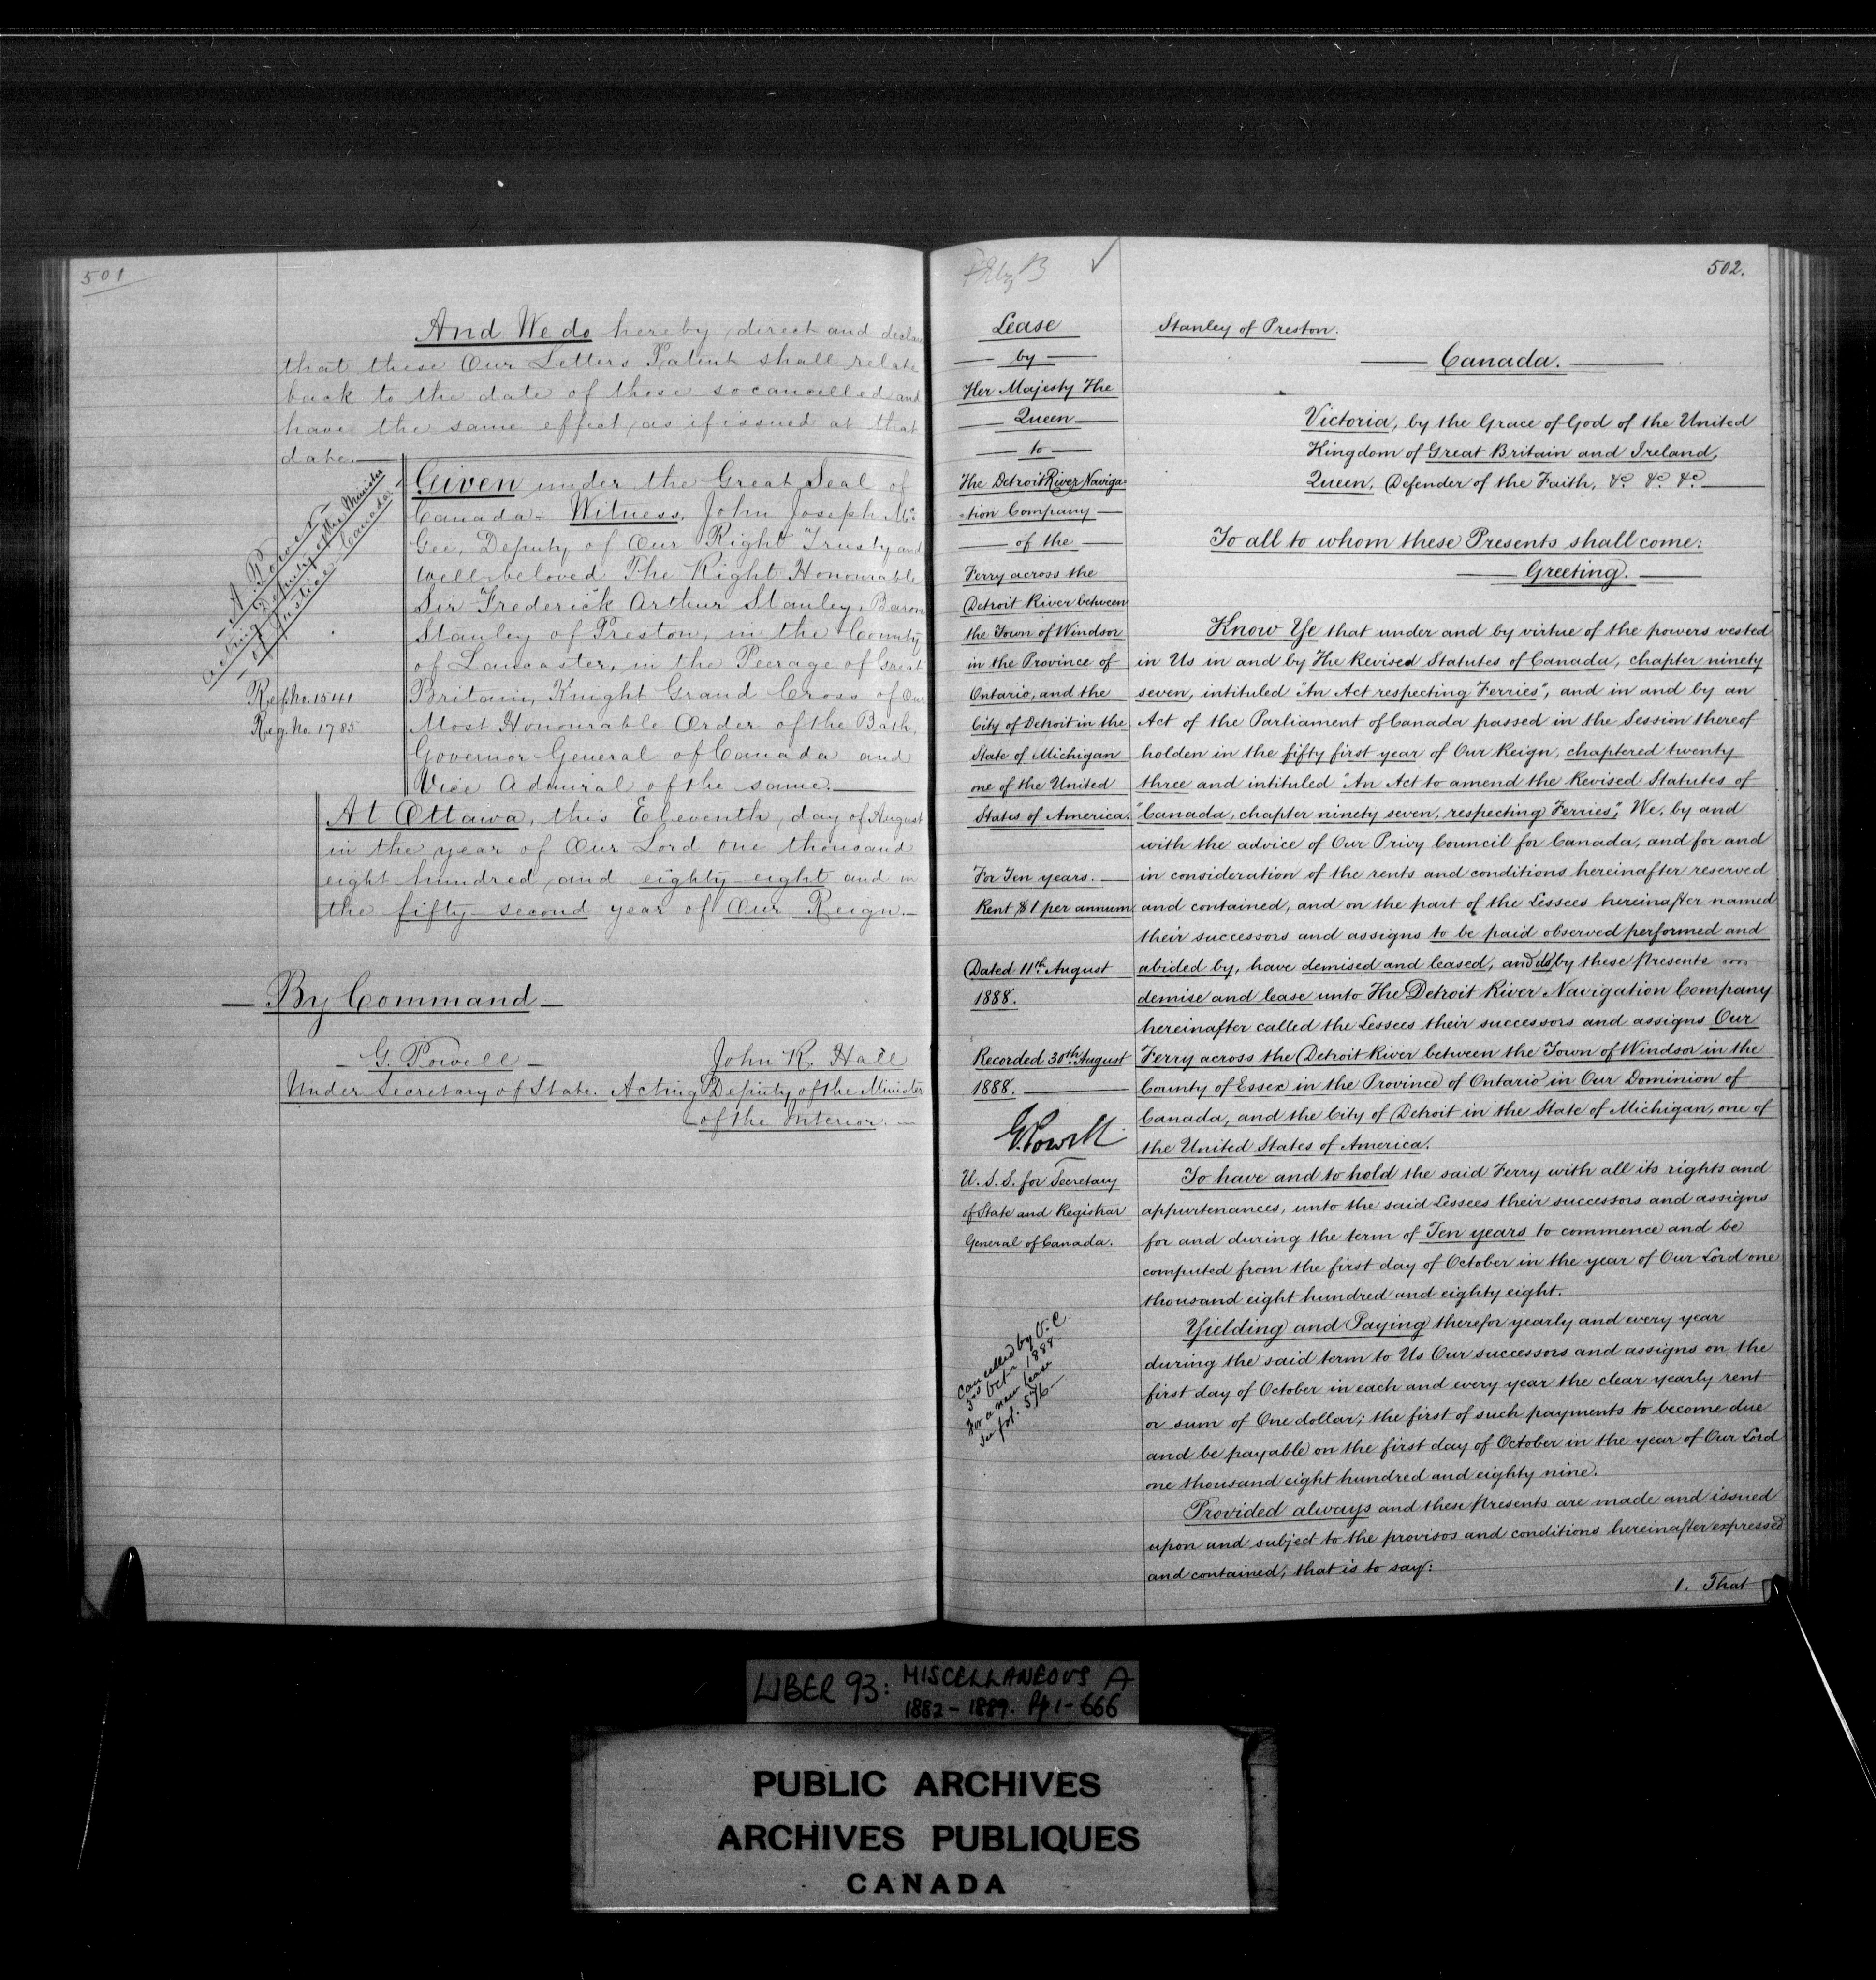 501
And We do hereby direct and declare
that these Our Letters Patent shall relate
back to the date of those so cancelled and
have the same effect as if issued at that
date.
A. Power
Acting Deputy of the Minister
of Justice Canada
Ref. No. 1541
Reg. No. 1785
Given under the Great Seal of
Canada: Witness, John Joseph Mc
Gee, Deputy of Our Right Trusty and
Well-beloved The Right Honourable
Sir Frederick Arthur Stanley, Baron
Stanley of Preston, in the County
of Lancaster, in the Peerage of Great
Britain, Knight Grand Cross of Our
Most Honourable Order of the Bath,
Governor General of Canada and
Vice Admiral of the same.
At Ottawa, this Eleventh day of August
in the year of Our Lord one thousand
eight hundred and eighty eight and in
the fifty second year of Our Reign.
By Command
G. Powell
Under Secretary of State.
John R. Hall
Acting Deputy of the Minister
of the Interior.
502.
Lease
by
Her Majesty The
Queen
to
The Detroit River Naviga
tion Company
of the
Ferry across the
Detroit River between
the Town of Windsor
in the Province of
Ontario, and the
City of Detroit in the
State of Michigan
one of the United
States of America.
For Ten years.
Rent $1 per annum
Dated 11th August
1888.
Recorded 30th August
1888.
G. Powell
U. S. S. for Secretary
of State and Registrar
General of Canada.
Cancelled by O. C.
3rd Octr 1888
For a new lease
see fol. 576
Stanley of Preston.
Canada.
Victoria, by the Grace of God of the United
Kingdom of Great Britain and Ireland,
Queen, Defender of the Faith, &c &c &c
To all to whom these Presents shall come:
Greeting.
Know Ye that under and by virtue of the powers vested
in Us in and by The Revised Statutes of Canada, chapter ninety
seven, intituled "An Act respecting Ferries", and in and by an
Act of the Parliament of Canada passed in the Session thereof
holden in the fifty first year of Our Reign, chaptered twenty
three and intituled "An Act to amend the Revised Statutes of
"Canada, chapter ninety seven, respecting Ferries", We, by and
with the advice of Our Privy Council for Canada, and for and
in consideration of the rents and conditions hereinafter reserved
and contained, and on the part of the Lessees hereinafter named
their successors and assigns to be paid observed performed and
abided by, have demised and leased, and do by these Presents
demise and lease unto The Detroit River Navigation Company
hereinafter called the Lessees their successors and assigns Our
Ferry across the Detroit River between the Town of Windsor in the
County of Essex in the Province of Ontario in Our Dominion of
Canada, and the City of Detroit in the State of Michigan, one of
the United States of America.
To have and to hold the said Ferry with all its rights and
appurtenances, unto the said Lessees their successors and assigns
for and during the term of Ten years to commence and be
computed from the first day of October in the year of Our Lord one
thousand eight hundred and eighty eight.
Yielding and Paying therefor yearly and every year
during the said term to Us Our successors and assigns on the
first day of October in each and every year the clear yearly rent
or sum of One dollar; the first of such payments to become due
and be payable on the first day of October in the year of Our Lord
one thousand eight hundred and eighty nine.
Provided always and these Presents are made and issued
upon and subject to the provisos and conditions hereinafter expressed
and contained, that is to say:
1. That
LIBER 93: MISCELLANEOUS A
1882-1889. Pp 1-666
PUBLIC ARCHIVES
ARCHIVES PUBLIQUES
CANADA